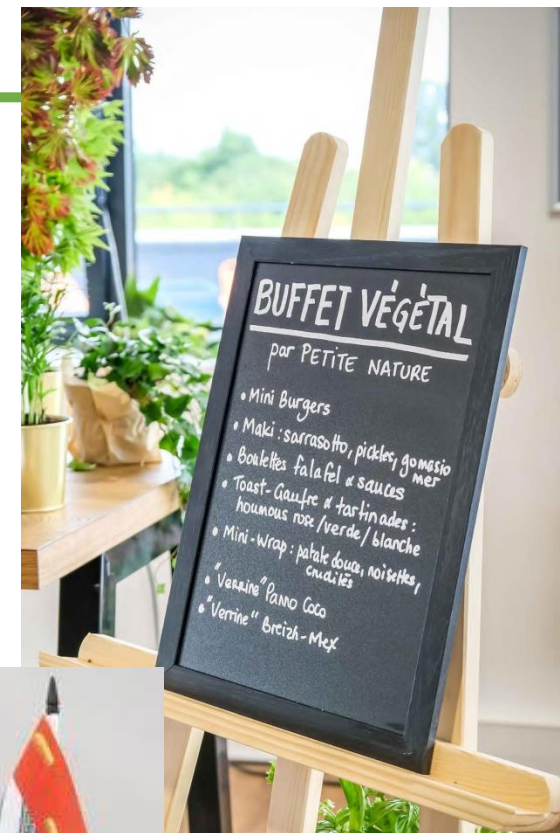 BUFFET VÉGÉTAL
par PETITE NATURE
• Mini Burgers
• Maki : sarrasotto, pickles, gomasio
mer
• Boulettes falafel & sauces
• Toast-Gaufre & tartinades :
houmous rose/verde/blanche
• Mini-wrap : patate douce, noisettes,
crudités
• "Verrine" Panno Coco
• "Verrine" Breizh-Mex